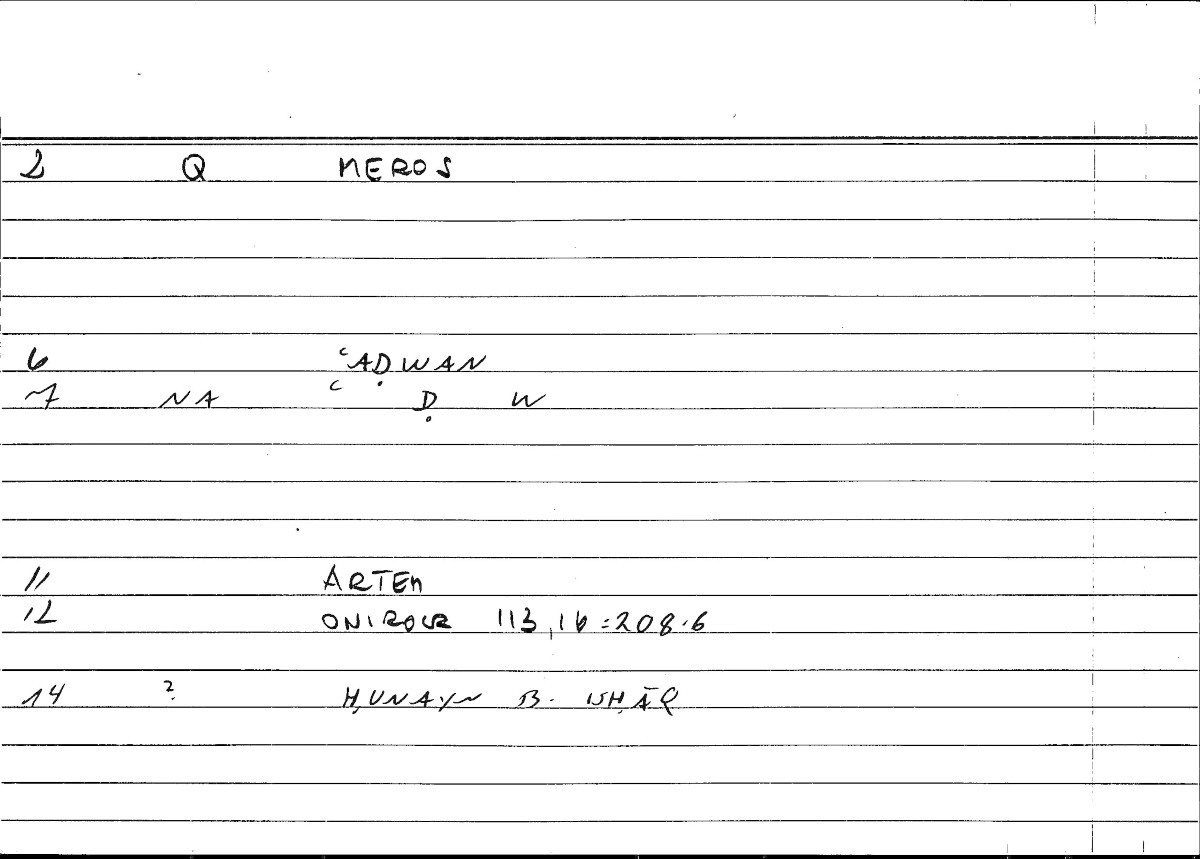 2 Q MEROS
6 ʿAḌWAN
7 NA ʿ Ḍ W
11 ARTEM
12 ONIROCR 113,16=208.6
14 ? ḤUNAYN B. ISḤĀQ